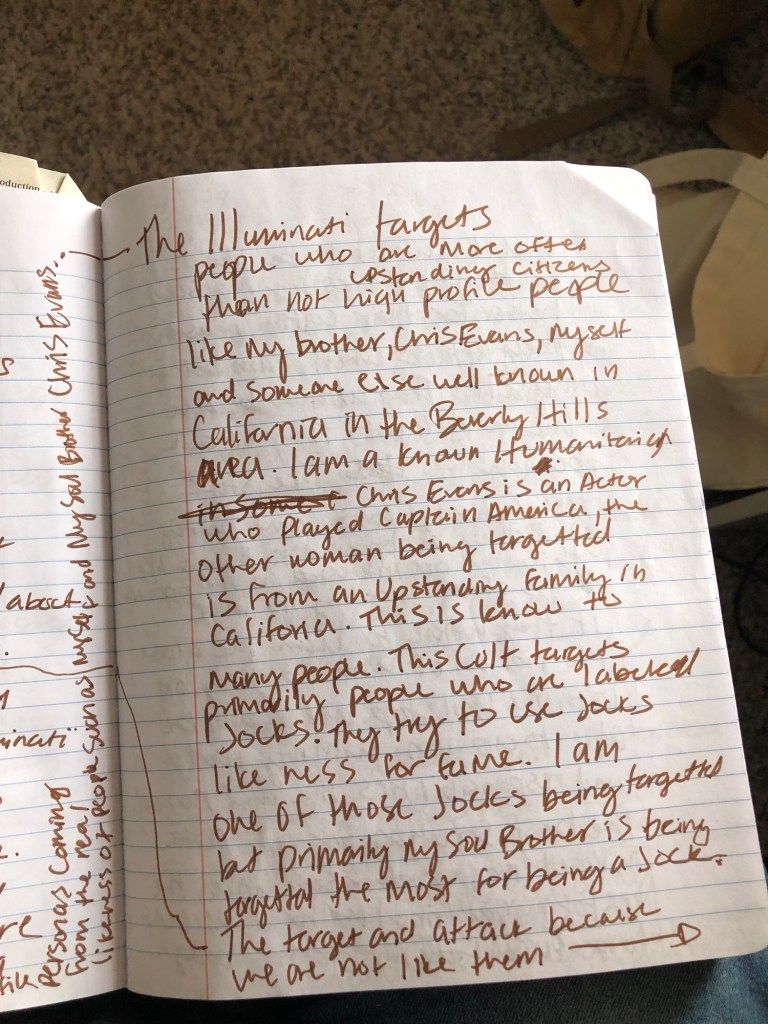 oduction
s
about
.
inati
re
Personas Coming
from the real
likeness of people such as myself and My Soul Brother Chris Evans..
The Illuminati targets
people who are more often
upstanding citizens
than not high profile people
like my brother, Chris Evans, myself
and someone else well known in
California in the Beverly Hills
area. I am a known Humanitarian
in some Chris Evans is an Actor
who played Captain America, the
other woman being targetted
is from an Upstanding family in
Califoria. This is know to
many people. This Cult targets
primarily people who are labeled
Jocks. They try to use Jocks
like ness for fame. I am
one of those Jocks being targetted
but primaily my Soul Brother is being
targettal the most for being a Jock.
The target and attack because
we are not like them →